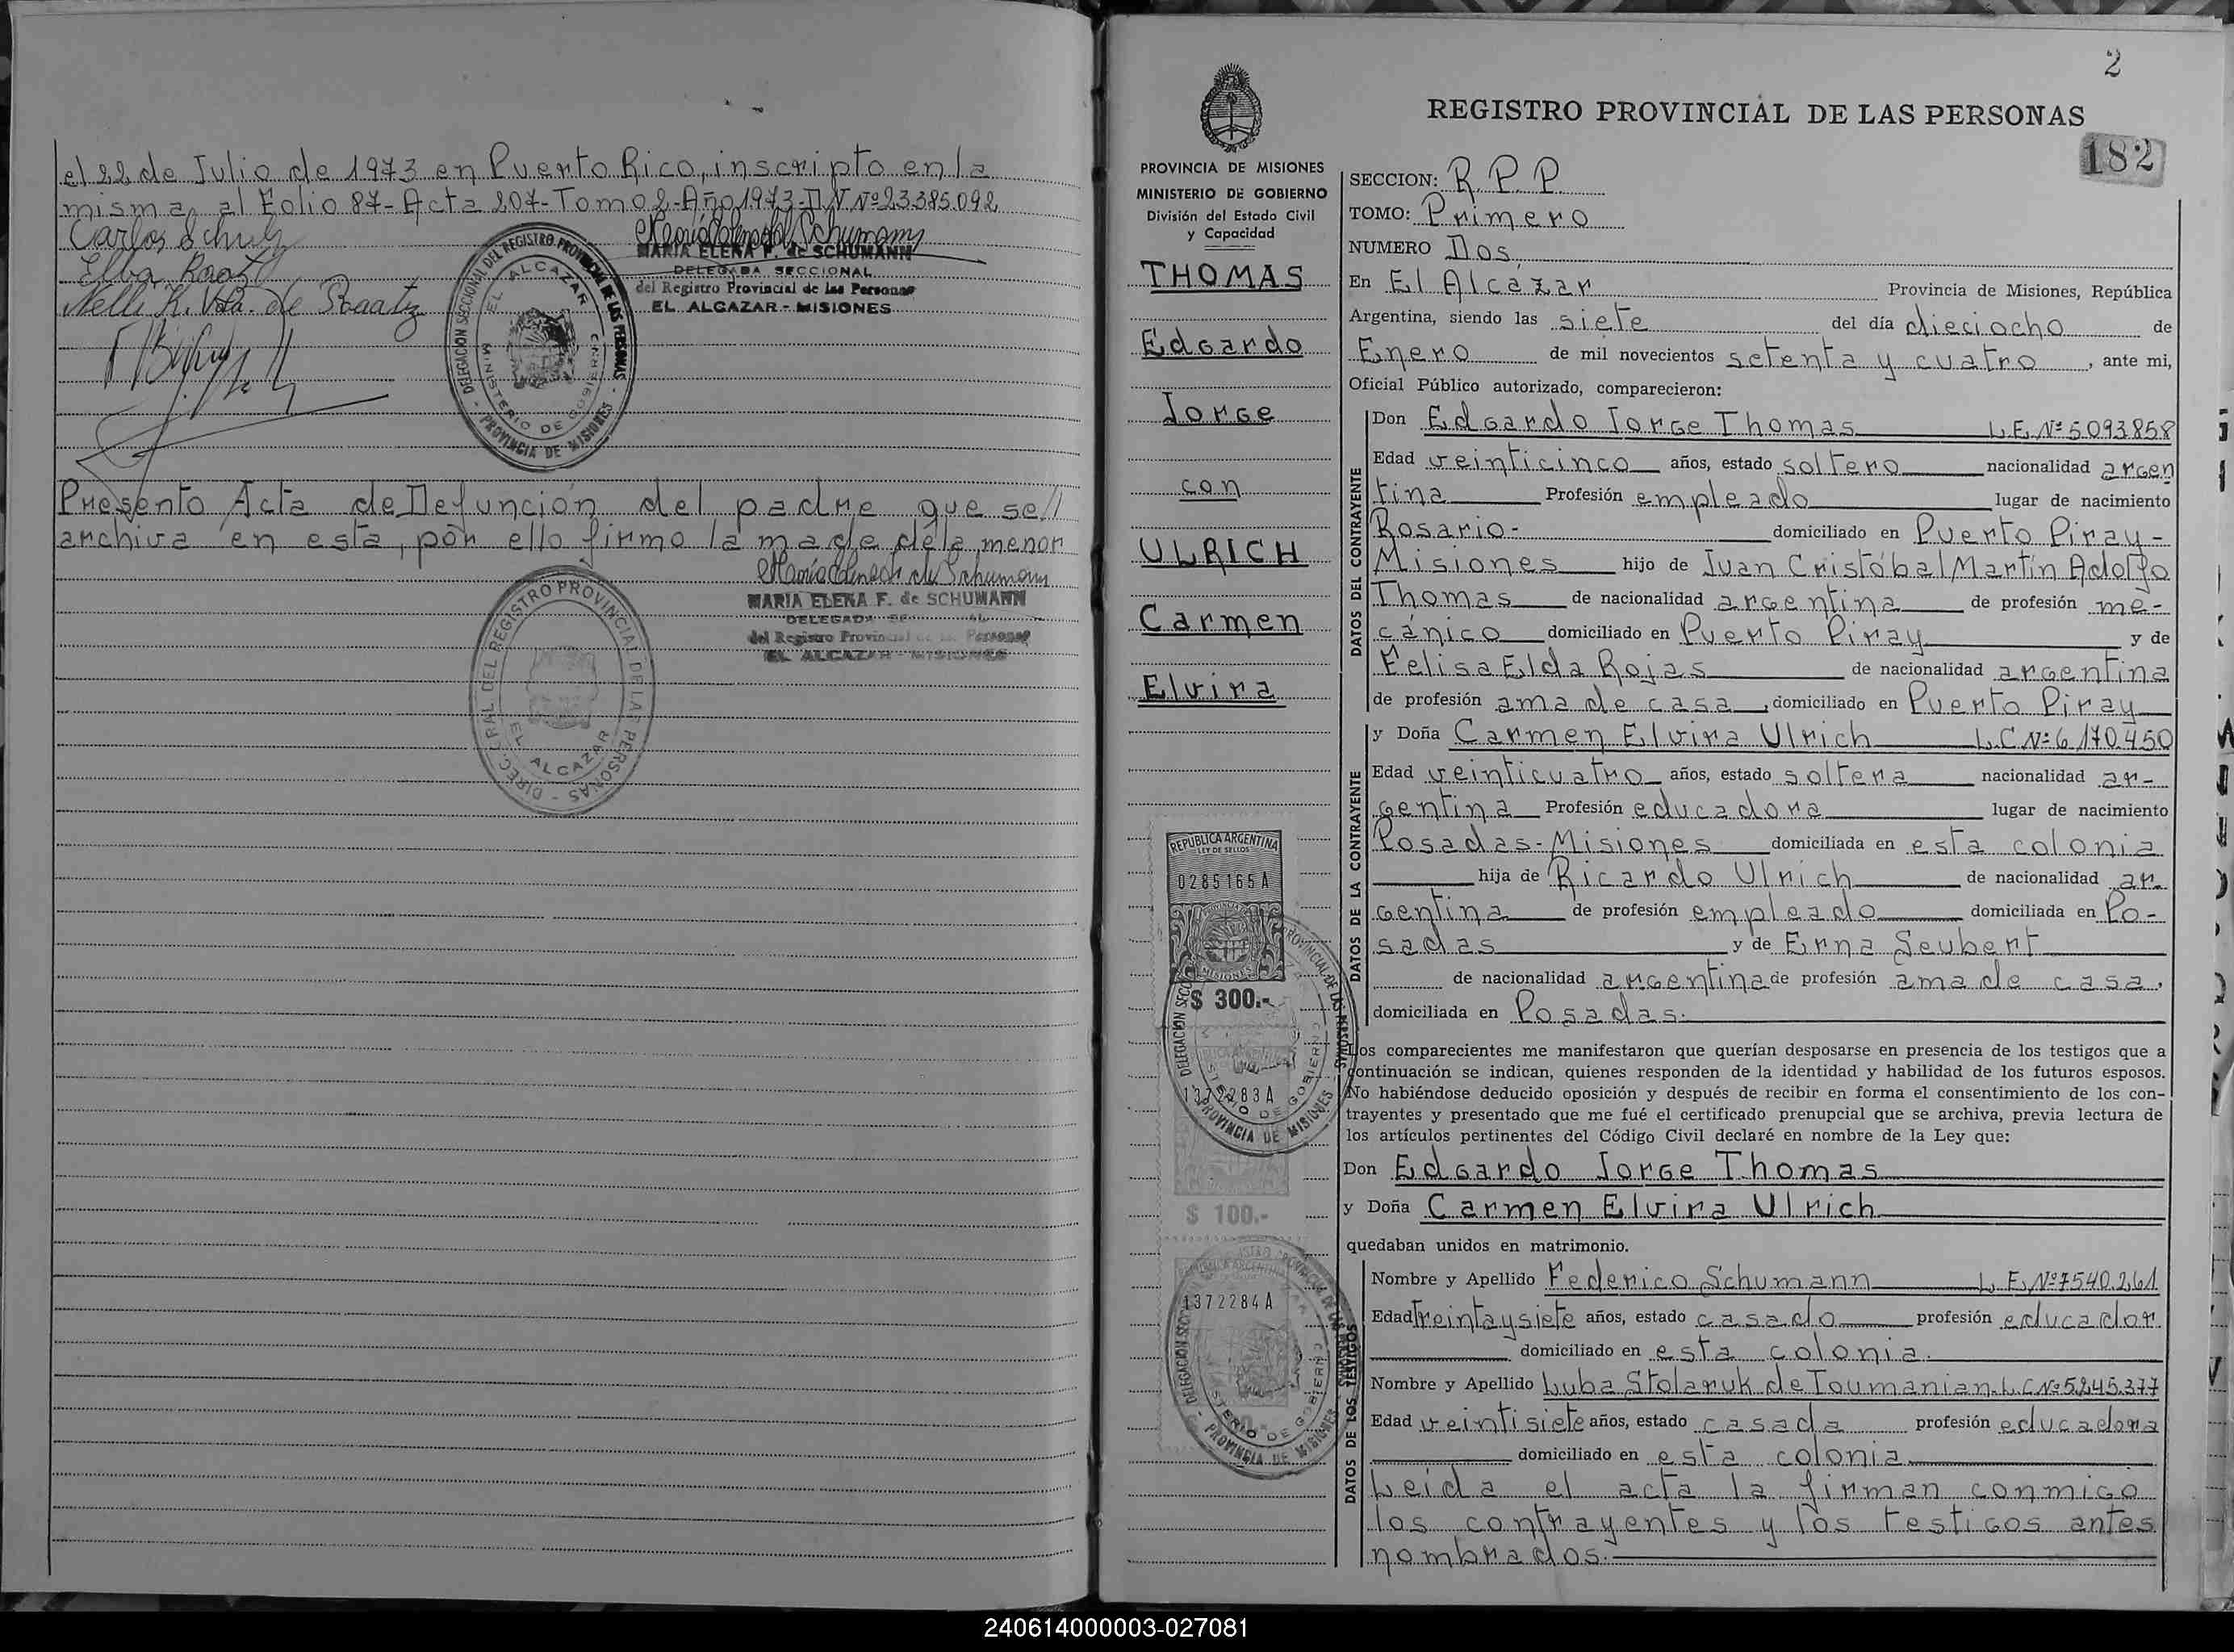 el 22 de Julio de 1973 en Puerto Rico, inscripto en la
misma al Folio 87-Acta 207-Tomo 2-Año 1973-D.N.Nº23.385.092
Carlos Schulz
Elba Raatz
Nelli R. Vda. de Raatz
MARIA ELENA F. de SCHUMANN
DELEGADA SECCIONAL
del Registro Provincial de las Personas
EL ALCAZAR - MISIONES
DELEGACION SECCIONAL DEL REGISTRO PROVINCIAL DE LAS PERSONAS - PROVINCIA DE MISIONES -
EL ALCAZAR
MINISTERIO DE GOBIERNO
Presento Acta de Defunción del padre que se//
archiva en esta, por ello firmo la madre de la menor
MARIA ELENA F. de SCHUMANN
DELEGADA
del Registro Provincial de las Personas
EL ALCAZAR - MISIONES
DIREC. GRAL DEL REGISTRO PROVINCIAL DE LAS PERSONAS -
EL ALCAZAR
2
REGISTRO PROVINCIAL DE LAS PERSONAS
182
PROVINCIA DE MISIONES
MINISTERIO DE GOBIERNO
División del Estado Civil
y Capacidad
THOMAS
Edgardo
Jorge
con
ULRICH
Carmen
Elvira
REPUBLICA ARGENTINA
LEY DE SELLOS
0285165A
MISIONES
$ 300.-
1372283A
$ 100.-
1372284A
SECCION: R.P.P.
TOMO: Primero
NUMERO Dos
En El Alcázar Provincia de Misiones, República
Argentina, siendo las siete del día dieciocho de
Enero de mil novecientos setenta y cuatro, ante mi,
Oficial Público autorizado, comparecieron:
DATOS DEL CONTRAYENTE
Don Edgardo Jorge Thomas L.E.Nº5.093.858
Edad veinticinco años, estado soltero nacionalidad argen
tina Profesión empleado lugar de nacimiento
Rosario- domiciliado en Puerto Piray-
Misiones hijo de Juan Cristóbal Martín Adolfo
Thomas de nacionalidad argentina de profesión me-
cánico domiciliado en Puerto Piray y de
Felisa Elda Rojas de nacionalidad argentina
de profesión ama de casa, domiciliado en Puerto Piray
DATOS DE LA CONTRAYENTE
y Doña Carmen Elvira Ulrich L.C.Nº6.170.450
Edad veinticuatro años, estado soltera nacionalidad ar-
gentina Profesión educadora lugar de nacimiento
Posadas-Misiones domiciliada en esta colonia
hija de Ricardo Ulrich de nacionalidad ar-
gentina de profesión empleado domiciliada en Po-
sadas y de Erna Seubert
de nacionalidad argentina de profesión ama de casa,
domiciliada en Posadas.
Los comparecientes me manifestaron que querían desposarse en presencia de los testigos que a
continuación se indican, quienes responden de la identidad y habilidad de los futuros esposos.
No habiéndose deducido oposición y después de recibir en forma el consentimiento de los con-
trayentes y presentado que me fué el certificado prenupcial que se archiva, previa lectura de
los artículos pertinentes del Código Civil declaré en nombre de la Ley que:
Don Edgardo Jorge Thomas
y Doña Carmen Elvira Ulrich
quedaban unidos en matrimonio.
DATOS DE LOS TESTIGOS
Nombre y Apellido Federico Schumann L.E.Nº7.540.261
Edad treinta y siete años, estado casado profesión educador
domiciliado en esta colonia.
Nombre y Apellido Luba Stolaruk de Toumanian-L.C.Nº5.245.377
Edad veintisiete años, estado casada profesión educadora
domiciliado en esta colonia
Leida el acta la firman conmigo
los contrayentes y los testigos antes
nombrados.
240614000003-027081